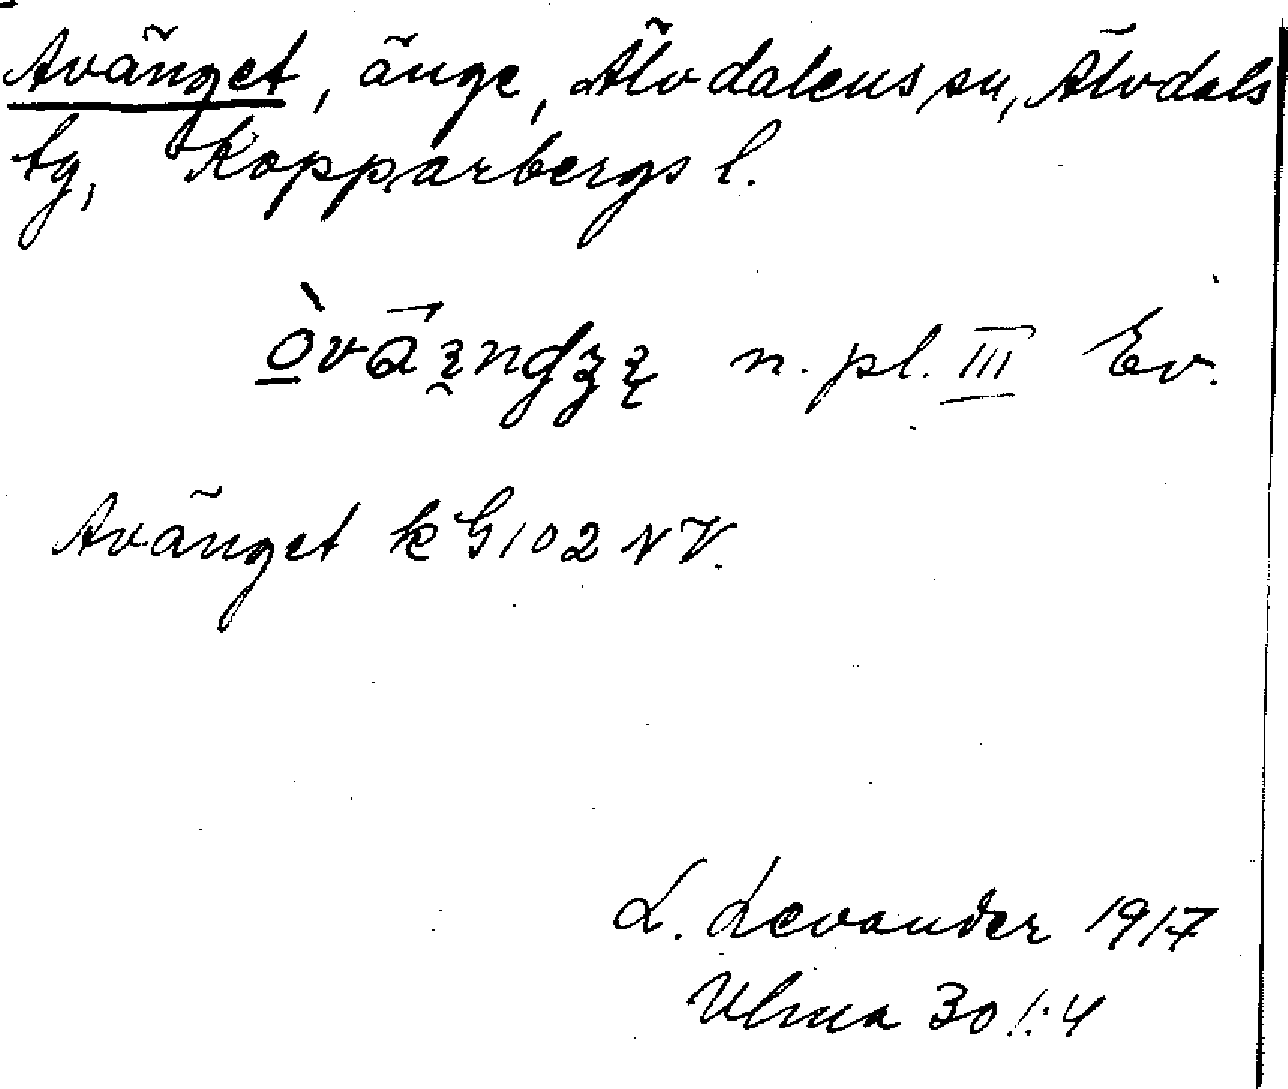 Avänget, änge, Älvdalens sn, Älvdals
tg, Kopparbergs l.
n. pl. III Ev.
Avänget k G 102 NV.
L. Levander 1917
Ulma 301:4